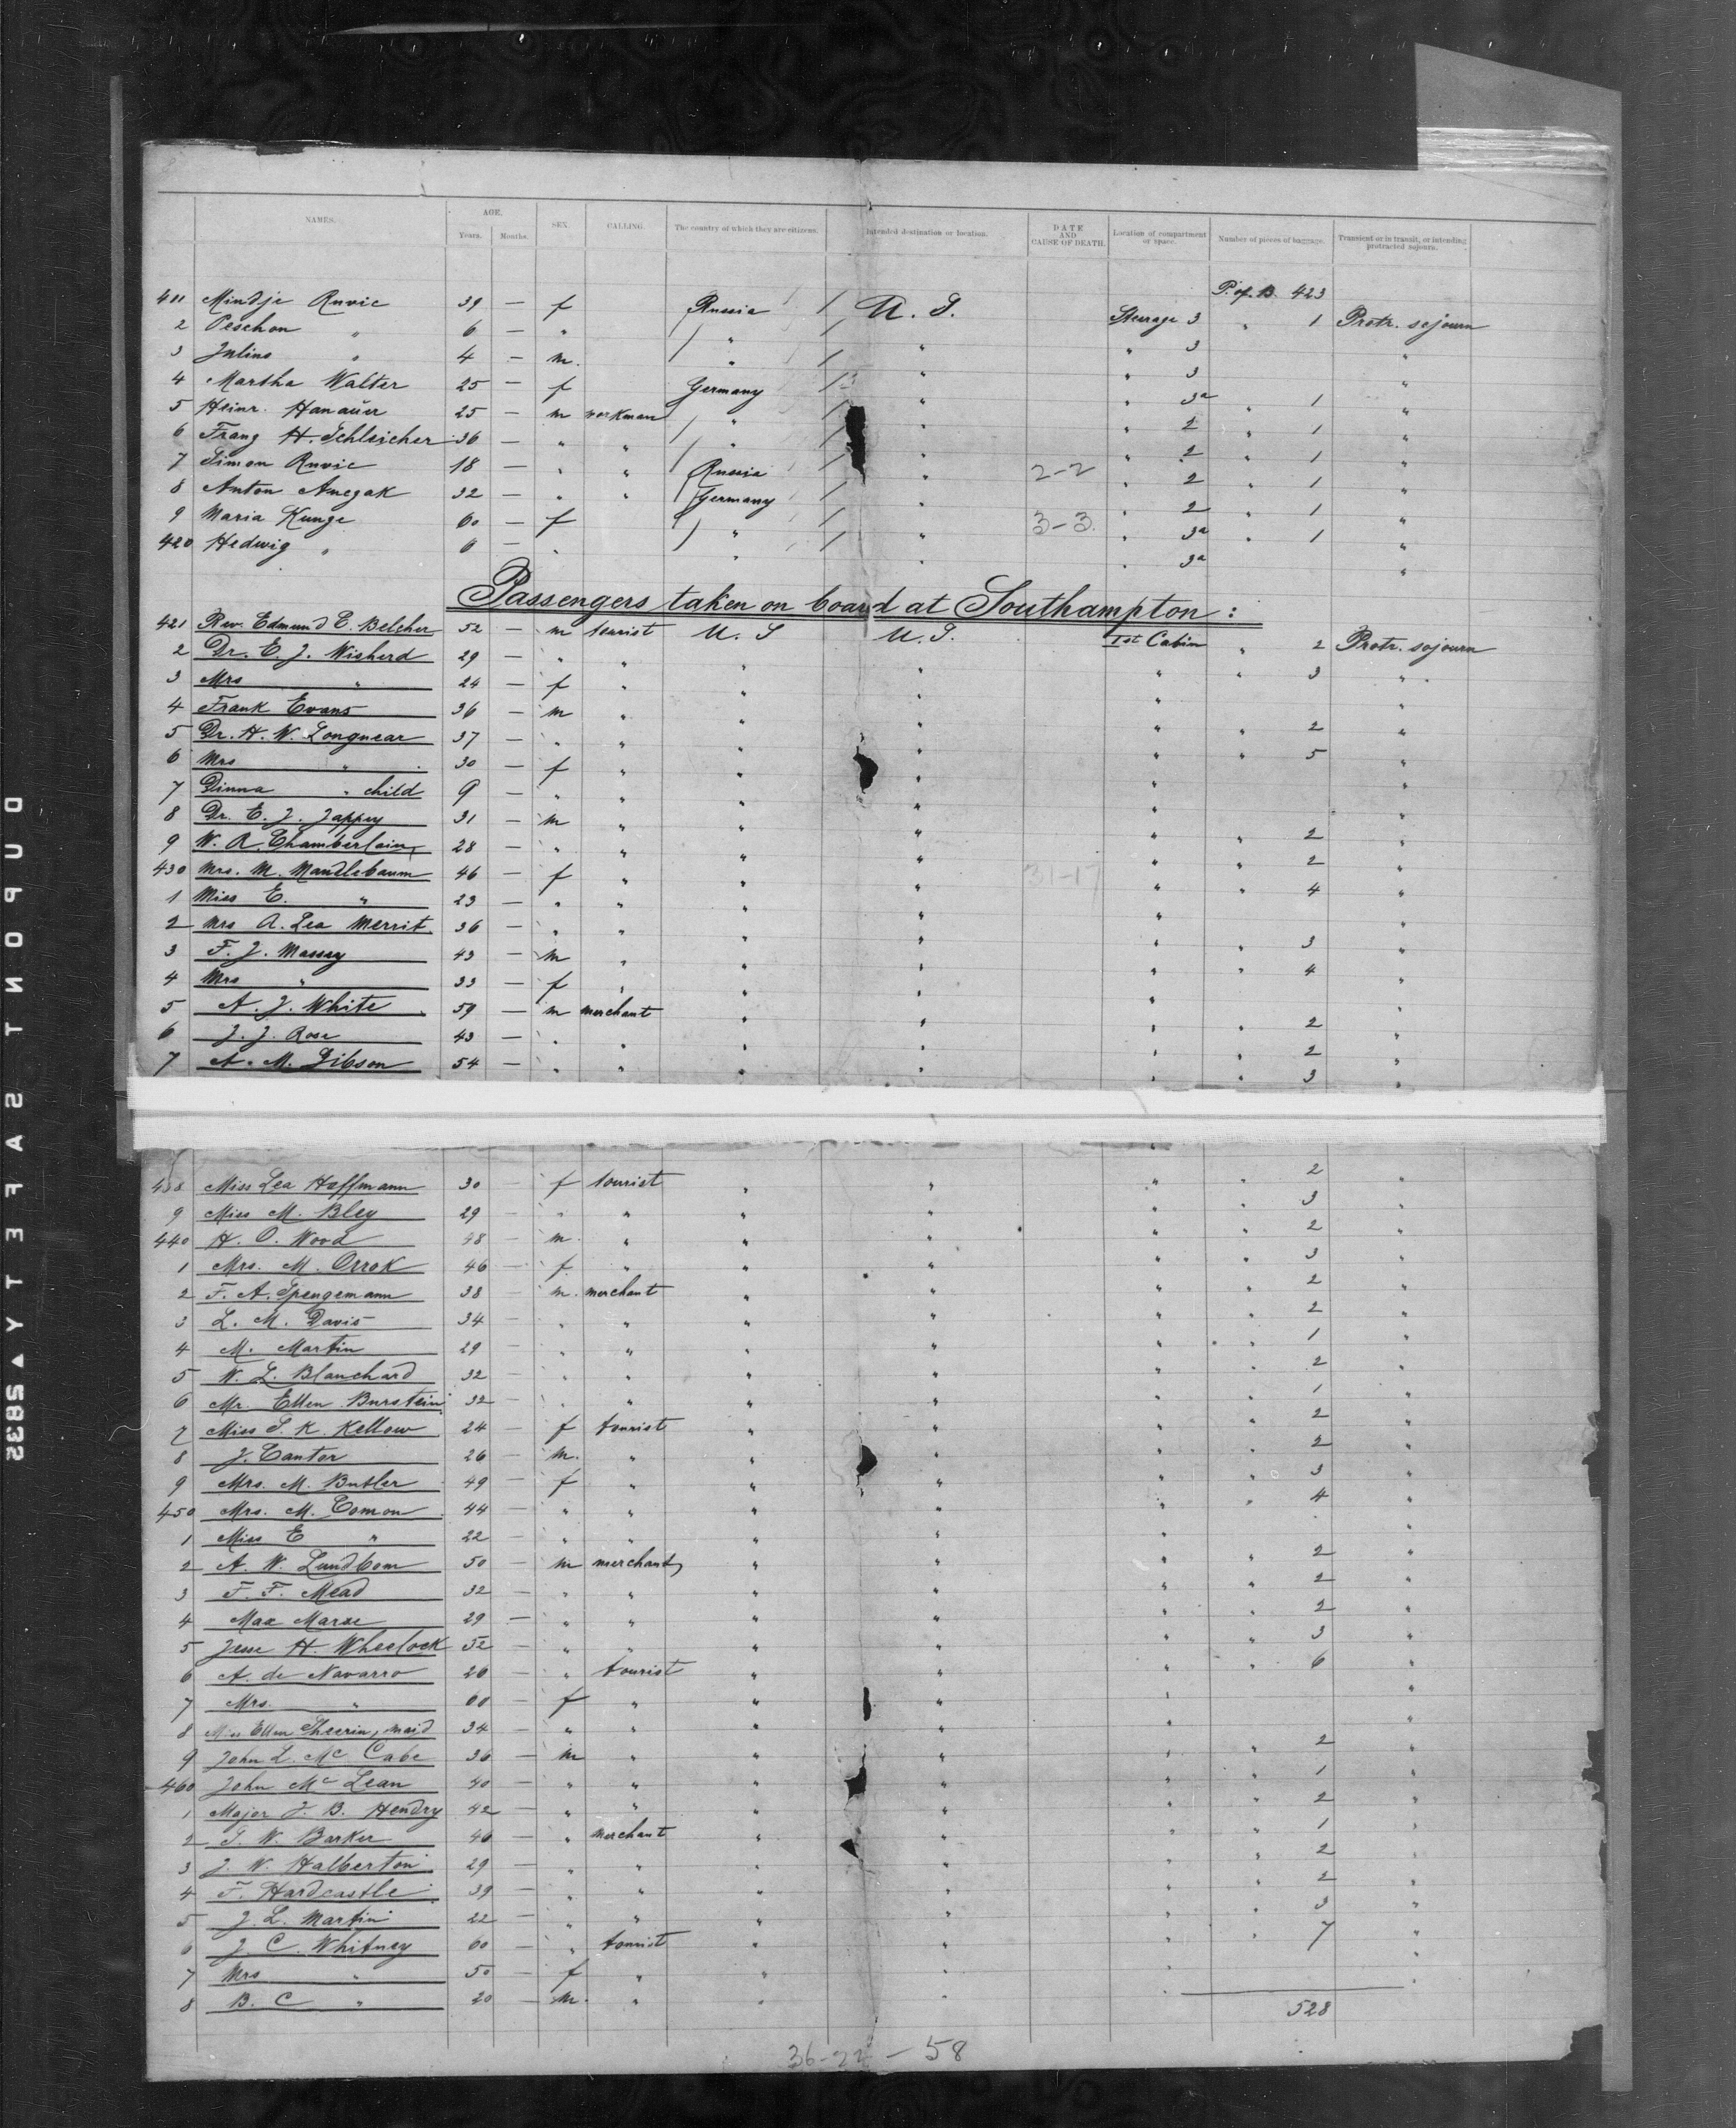 NAMES. AGE. Years. Months. SEX. CALLING. The country of which they are citizens. Intended destination or location. DATE AND CAUSE OF DEATH. Location of compartment or space. Number of pieces of baggage. Transient or in transit, or intending protracted sojourn.
P. of B. 423
411 Mindje Ruvic 39 — f Russia / U. S. Steerage 3 " 1 Protr. sejourn
2 Peschon " 6 — " / " / " " 3 "
3 Julius " 4 — m. " / " " 3 "
4 Martha Walter 25 — f Germany / " " 3a " 1 "
5 Heinr. Hanauer 25 — m workman / " / " " 2 " 1 "
6 Franz H. Schleicher 36 — " " / " / " " 2 " 1 "
7 Simon Ruvic 18 — " " Russia / " 2-2 " 2 " 1 "
8 Anton 32 — " " / Germany / " " 2 " 1 "
9 Maria Kunze 60 — f / " / " 3-3. " 3a " 1 "
420 Hedwig " 6 — " " " " 3a "
Passengers taken on board at Southampton :
421 Rev. Edmund E. Belcher 52 — m tourist U. S U. S. Ist Cabin " 2 Protr. sojourn
2 Dr. E. J. Wisherd 29 — " " " " " " 3 "
3 Mrs " 24 — f " " " " "
4 Frank Evans 36 — m " " " " " 2 "
5 Dr. H. W. Longnear 37 — " " " " " " 5 "
6 Mrs " 30 — f " " " " "
7 Dinna " child 9 — " " " " " "
8 Dr. E. J. Jappey 31 — m " " " " " 2 "
9 W. A. Chamberlain 28 — " " " " " " 2 "
430 Mrs. M. Mandlebaum 46 — f " " " 31-17 " " 4 "
1 Miss E. " 23 — " " " " " "
2 Mrs A. Lea Merrit 36 — " " " " " " 3 "
3 F. J. Massey 43 — m " " " " " 4 "
4 Mrs " 33 — f " " " " "
5 A. J. White 59 — m merchant " " " " 2 "
6 J. J. Rose 43 — " " " " " " 2 "
7 A. M. Gibson 54 — " " " " " " 3 "
438 Miss Lea Hoffmann 30 — f tourist " " " " 2 "
9 Miss M. Bley 29 — " " " " " " 3 "
440 H. O. Wood 48 — m. " " " " " 2 "
1 Mrs. M. Orrok 46 — f. " " " " " 3 "
2 F. A. Spengemann 38 — m. merchant " " " " 2 "
3 L. M. Davis 34 — " " " " " " 2 "
4 M. Martin 29 — " " " " " " 1 "
5 W. L. Blanchard 32 — " " " " " " 2 "
6 Mr. Ellen Burstein 32 — " " " " " " 1 "
7 Miss S. K. Kellow 24 — f tourist " " " " 2 "
8 J. Cantor 26 — m. " " " " " 2 "
9 Mrs. M. Butler 49 — f " " " " " 3 "
450 Mrs. M. Comon 44 — " " " " " " 4 "
1 Miss E " 22 — " " " " " "
2 A. W. Lundbom 50 — m merchant " " " " 2 "
3 F. F. Mead 32 — " " " " " " 2 "
4 Max Marse 29 — " " " " " " 2 "
5 Jesse H. Wheelock 52 — " " " " " " 3 "
6 A. de Navarro 26 — " tourist " " " " 6 "
7 Mrs. " 60 — f " " " " "
8 Miss Ellen Sheerin, maid 34 — " " " " " "
9 John L. Mc Cabe 36 — m " " " " " 2 "
460 John Mc Lean 40 — " " " " " " 1 "
1 Major J. B. Hendry 42 — " " " " " " 2 "
2 S. W. Barker 46 — " merchant " " " " 1 "
3 J. W. Halberton 29 — " " " " " " 2 "
4 F. Hardcastle 39 — " " " " " " 2 "
5 J. L. Martin 22 — " " " " " " 3 "
6 J. C. Whitney 60 — " tourist " " " " 7 "
7 Mrs " 50 — f " " " " "
8 B. C " 20 — m. " " " "
528
36-22 — 58
DUPONT SAFETY ▲ 5835